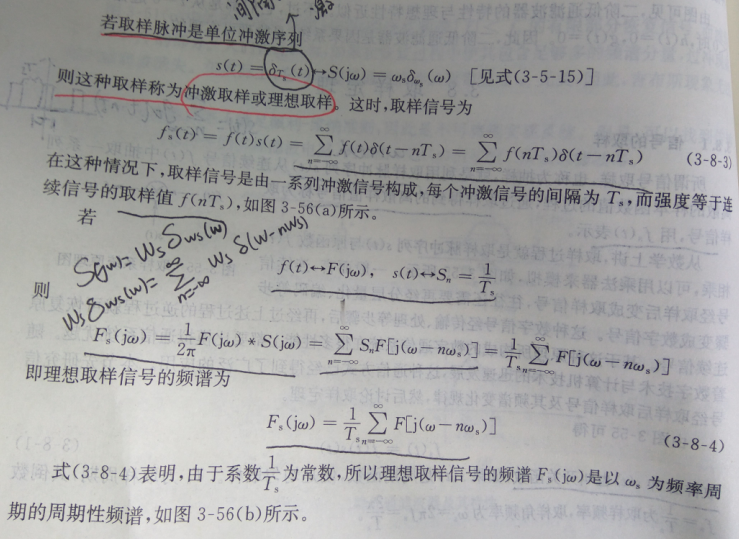 间隔 激
若取样脉冲是单位冲激序列
s(t) = δ_{T_s}(t), S(jω) = ω_sδ_{ω_s}(ω) [见式(3-5-15)]
则这种取样称为冲激取样或理想取样。这时,取样信号为
f_s(t) = f(t)s(t) = ∑_{n=-∞}^{∞} f(t)δ(t-nT_s) = ∑_{n=-∞}^{∞} f(nT_s)δ(t-nT_s) (3-8-3)
在这种情况下,取样信号是由一系列冲激信号构成,每个冲激信号的间隔为 T_s,而强度等于连
续信号的取样值 f(nT_s),如图 3-56(a)所示。
若
S(jω)= W_s δ_{ws}(w)
W_s δ_{ws}(w)= ∑_{n=-∞}^{∞} W_s δ(w-nWs)
f(t)↔F(jω), s(t)↔S_n = 1/T_s
则
F_s(jω) = 1/2π F(jω) * S(jω) = ∑_{n=-∞}^{∞} S_nF[j(ω-nω_s)] = 1/T_s ∑_{n=-∞}^{∞} F[j(ω-nω_s)]
即理想取样信号的频谱为
F_s(jω) = 1/T_s ∑_{n=-∞}^{∞} F[j(ω-nω_s)] (3-8-4)
式(3-8-4)表明,由于系数 1/T_s 为常数,所以理想取样信号的频谱 F_s(jω)是以 ω_s 为频率周
期的周期性频谱,如图 3-56(b)所示。